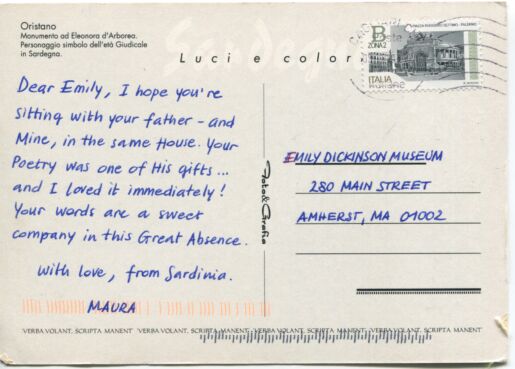 Oristano
Monumento ad Eleonora d'Arborea.
Personaggio simbolo dell'età Giudicale
in Sardegna.
Sardegna
Luci e color
B
ZONA 2
ITALIA
Dear Emily, I hope you're
sitting with your father - and
Mine, in the same House. Your
Poetry was one of His gifts...
and I loved it immediately!
Your words are a sweet
company in this Great Absence.
with love, from Sardinia.
MAURA
Foto&Grafia
EMILY DICKINSON MUSEUM
280 MAIN STREET
AMHERST, MA 01002
VERBA VOLANT, SCRIPTA MANENT VERBA VOLANT, SCRIPTA MANENT VERBA VOLANT, SCRIPTA MANENT VERBA VOLANT, SCRIPTA MANENT